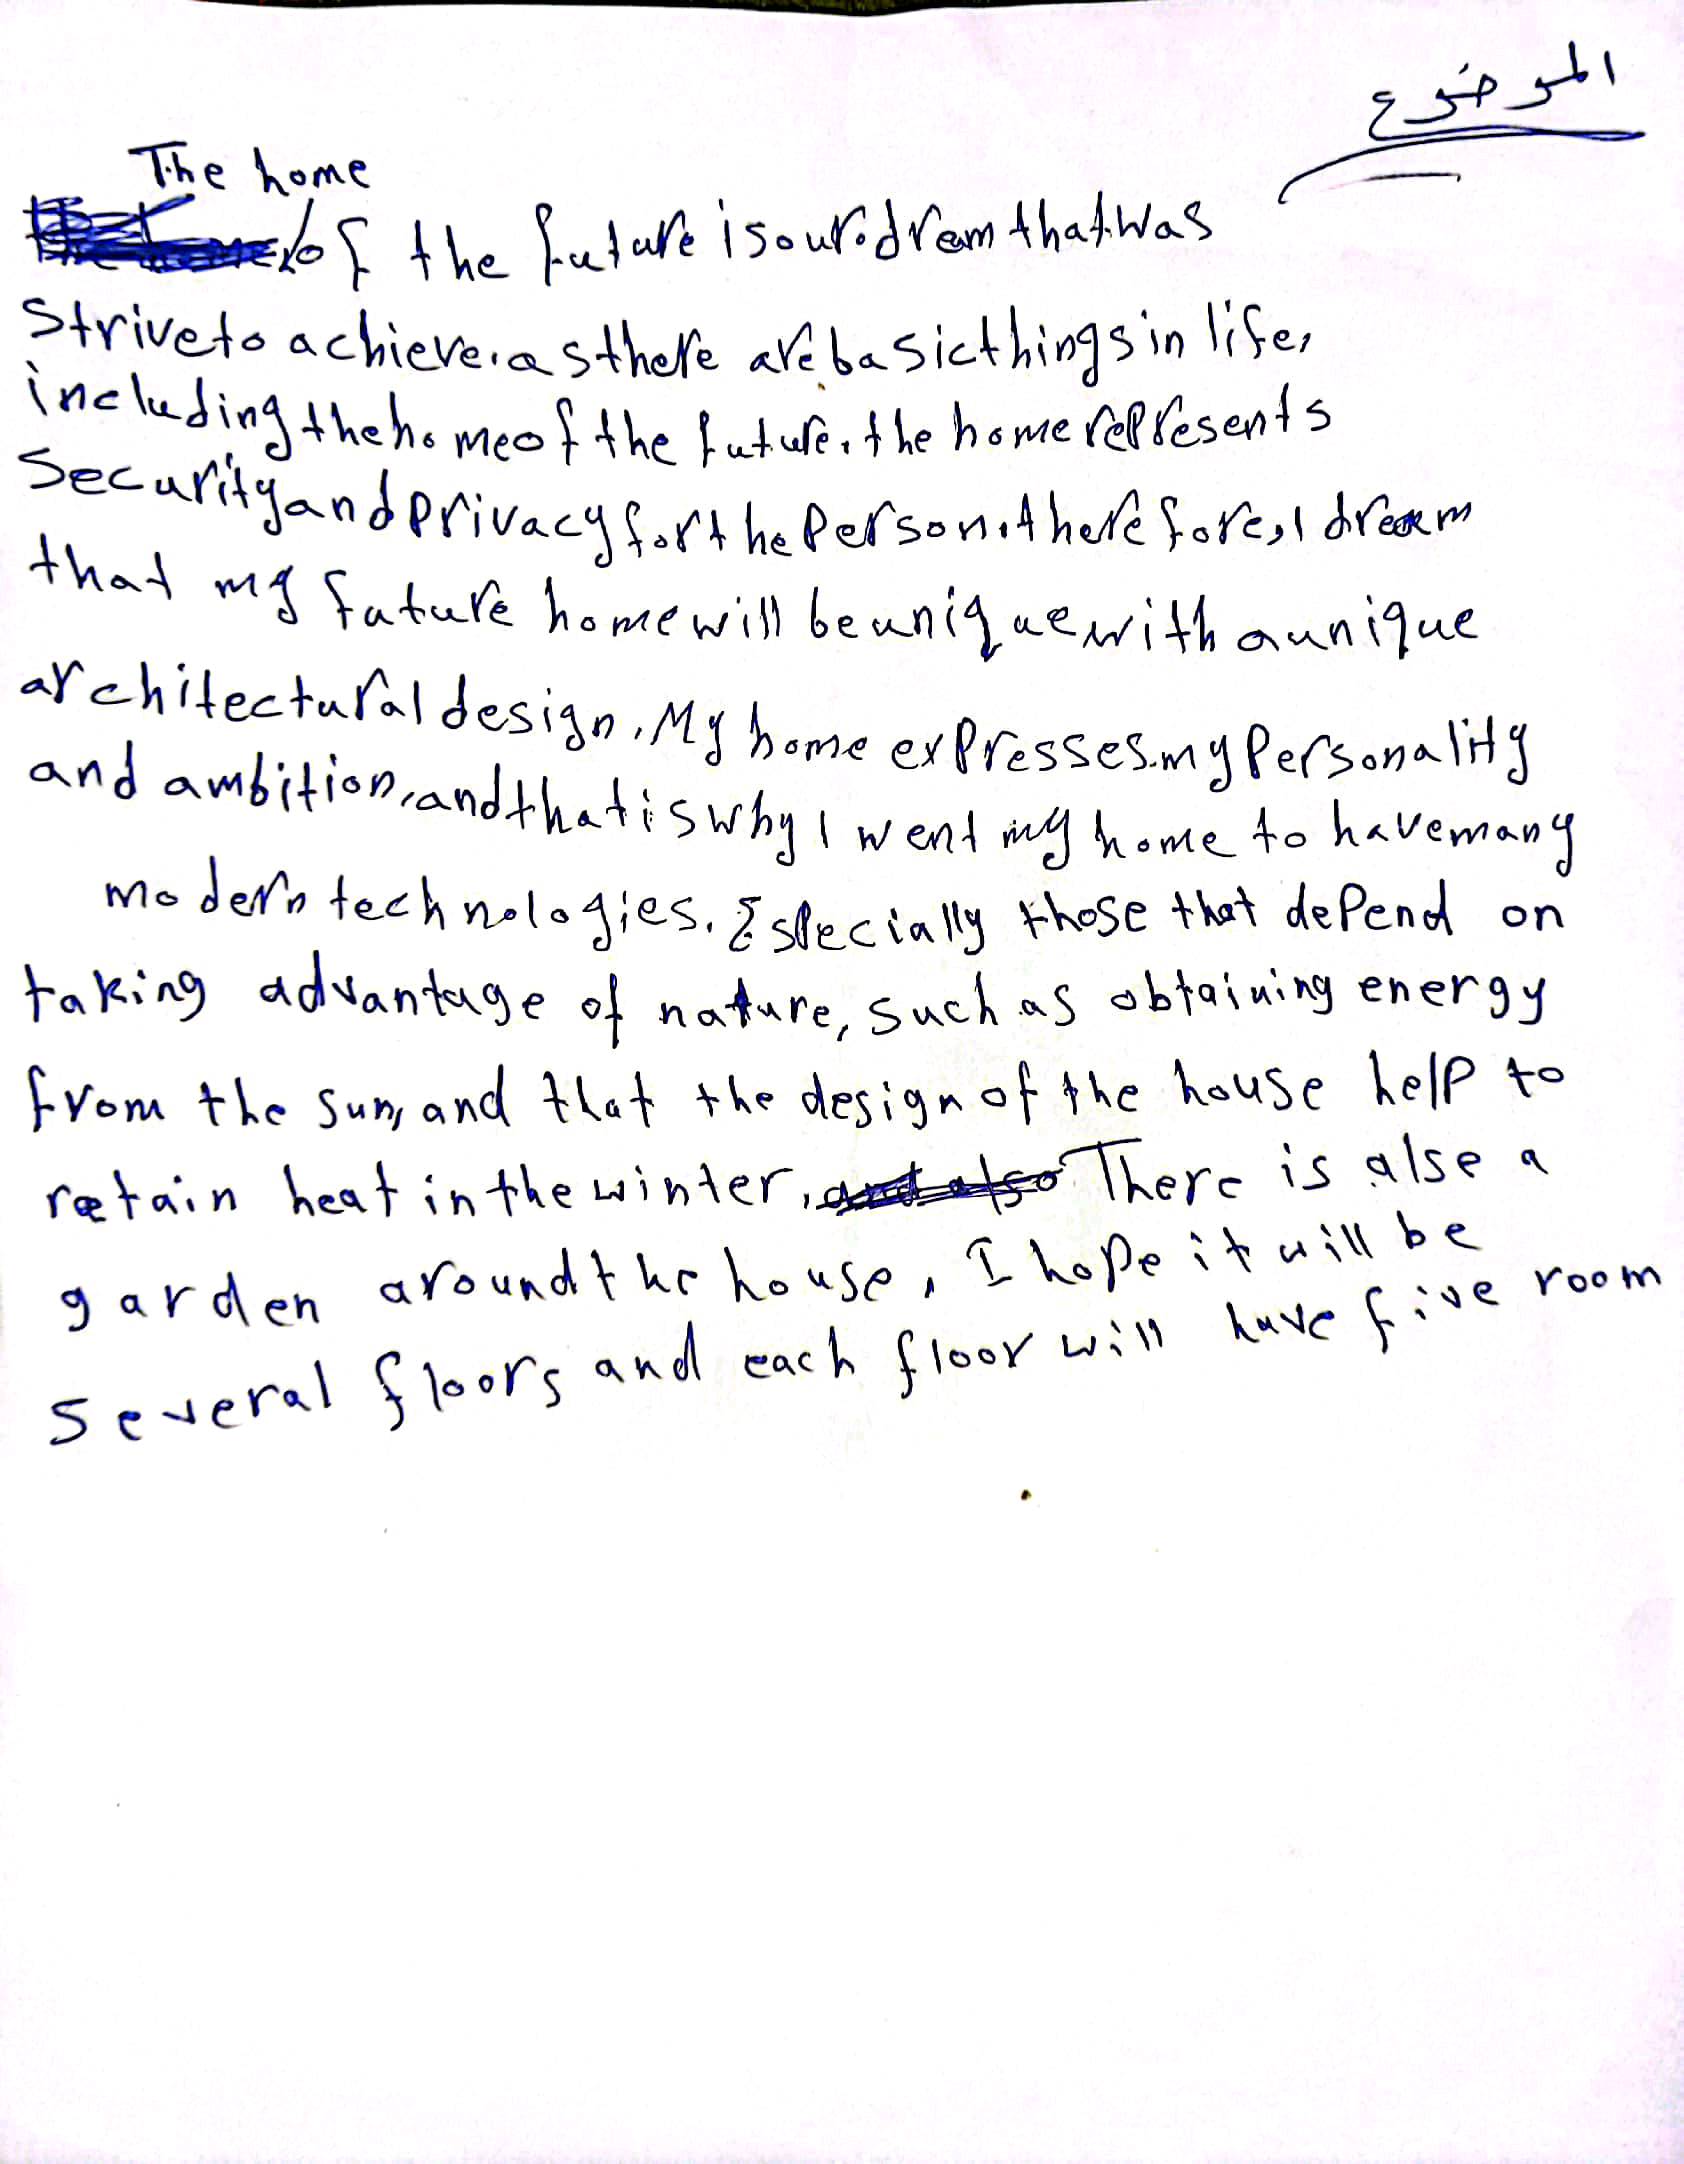 الموضوع
The home
of the future is our dream that was
Strive to achieve, as there are basic things in life,
including the home of the future, the home represents
Security and Privacy for the Person, therefore, I dream
that my future home will be unique with a unique
architectural design. My home expresses my Personality
and ambition, and that is why I went my home to have many
modern technologies. Especially those that depend on
taking advantage of nature, such as obtaining energy
from the sun, and that the design of the house help to
retain heat in the winter. There is alse a
garden around the house, I hope it will be
several floors and each floor will have five room